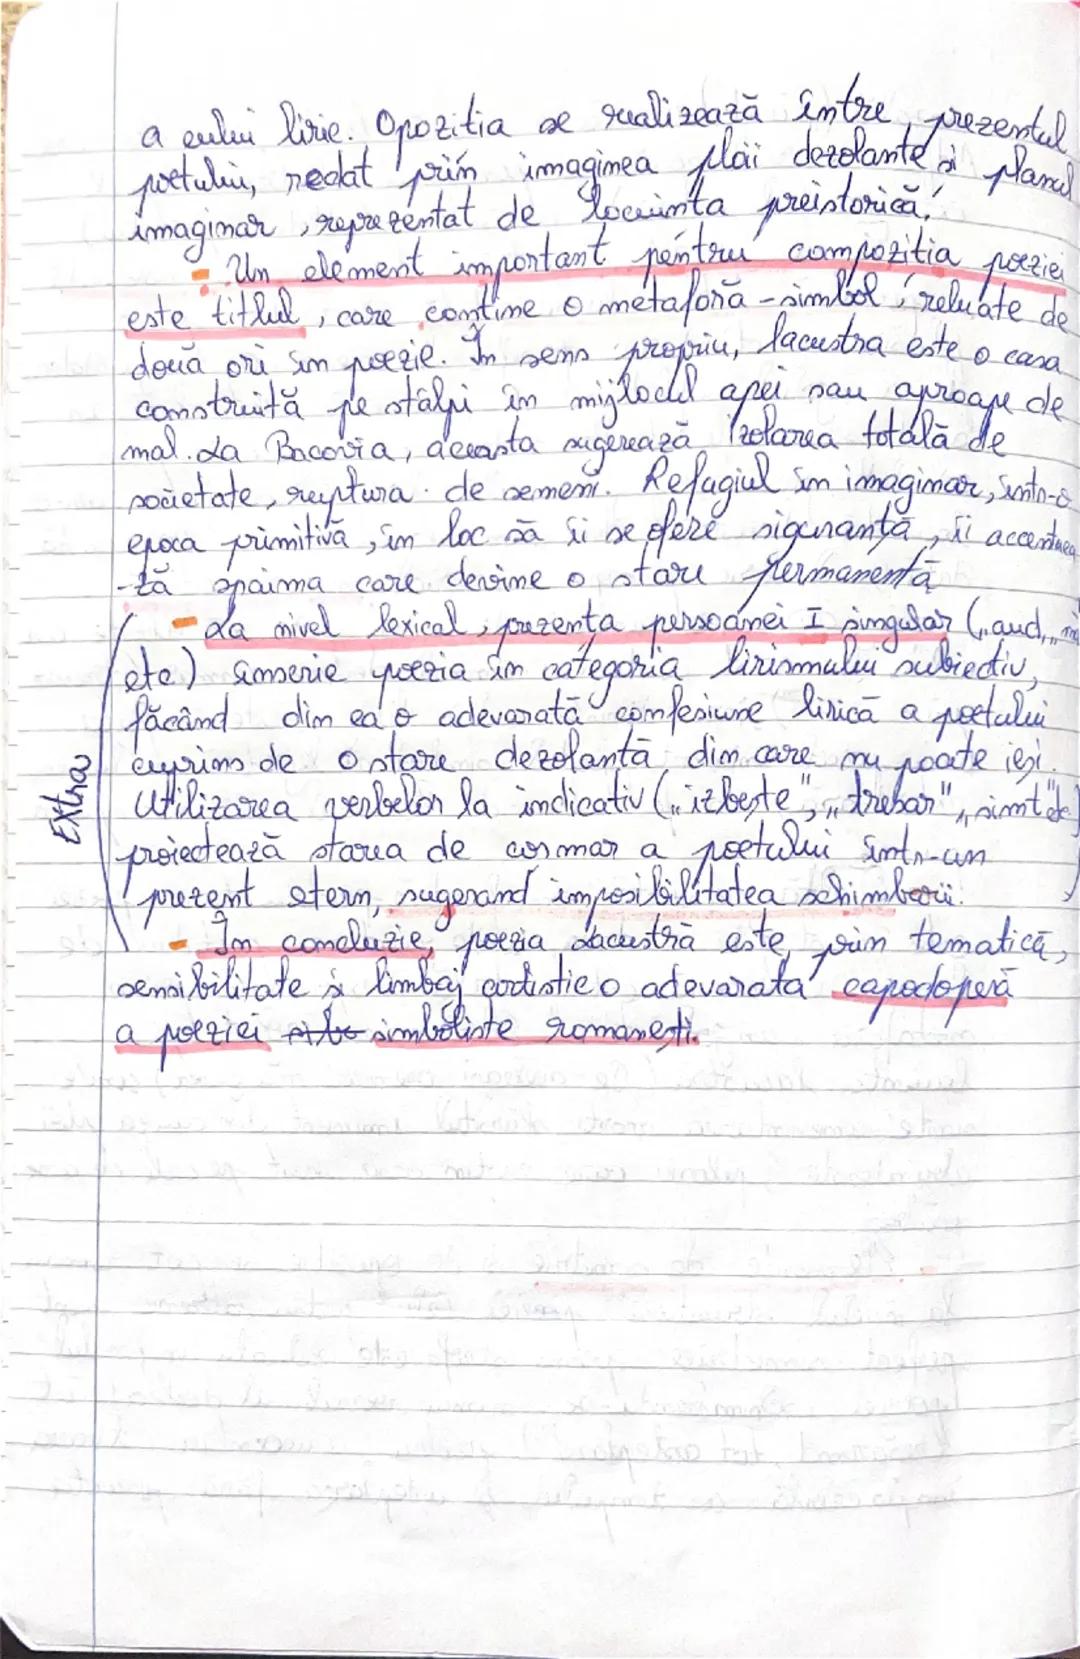 a eului liric. Opozitia se realizează între prezentul
poetului, redat prin imaginea ploii dezolante și planul
imaginar, reprezentat de locuinta preistorică.
- Un element important pentru compozitia poeziei
este titlul, care contine o metaforă-simbol, reluate de
două ori în poezie. În sens propriu, lacustra este o casa
construită pe stâlpi în mijlocul apei sau aproape de
mal. La Bacovia, aceasta sugerează izolarea totală de
societate, ruptura de semeni. Refugiul în imaginar, într-o
epoca primitivă, în loc să îi se ofere siguranță, îi accentuea
-ză spaima care devine o stare permanentă
- La nivel lexical, prezența persoanei I singular („aud",
etc) înscrie poezia în categoria lirismului subiectiv,
făcând din ea o adevarată confesiune lirică a poetului
cuprins de o stare dezolantă din care nu poate ieși.
Extra
Utilizarea verbelor la indicativ („izbește", „tresar", „simt" etc)
proiectează starea de cosmar a poetului într-un
prezent etern, sugerand imposibilitatea schimbării.
- În concluzie, poezia Lacustră este, prin tematică,
sensibilitate și limbaj artistic o adevarata capodoperă
a poeziei simboliste romanești.